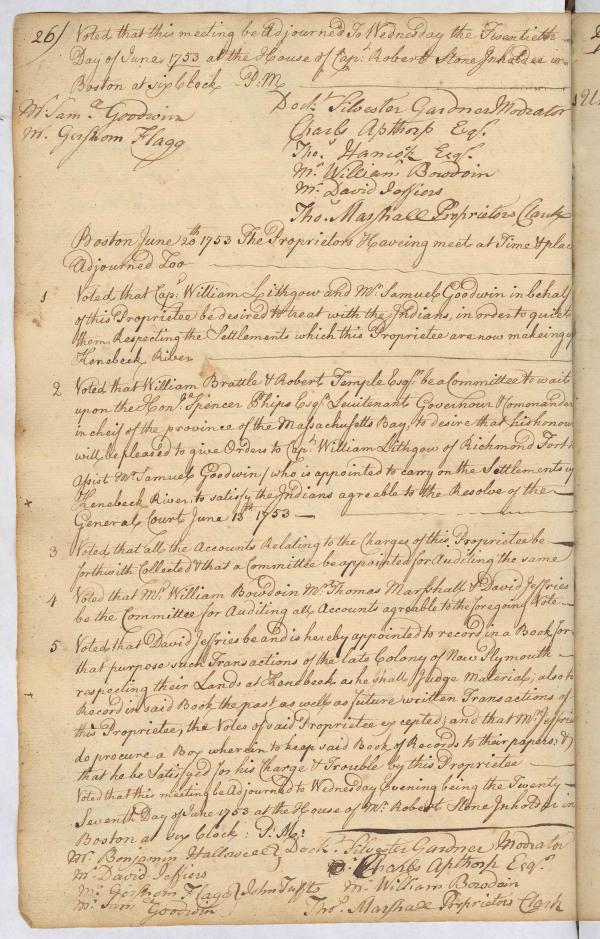 26/ Voted that this meeting be Adjourned To Wednesday the Twentieth
Day of June 1753 at the House of Capt. Robert Stone Inholder in
Boston at six Clock P:M
Mr. Saml. Goodwin
Mr. Gershom Flagg
Doctr. Silvester Gardner Modrator
Charls Apthorp Esqr.
Thos. Hancock Esqr.
Mr. William Bowdoin
Mr. David Jeffiers
Thos. Marshall Proprietors Clark
Boston June 20th 1753 The Proprietors Haveing meet at Time & place
Adjourned Too
1 Voted that Capt. William Lithgow and Mr. Samuel Goodwin in behalf
of this Proprietee be desired to treat with the Indians, in order to quiete
them Respecting the Settlements which this Proprietee are now makeing
Kenebeck River
2 Voted that William Brattle & Robert Temple Esqrs. be a Committee to wait
upon the Honble. Spencer Phips Esqr. Lieutenant Governour & Comonander
in cheif of the province of the Massachusetts Bay, to desire that his honour
will be pleased to give Orders to Capt. William Lithgow of Richmond Fort
Assist Mr. Samuel Goodwin (who is appointed to carry on the Settlements
Kenebeck River, to satisfy the Indians agreable to the Resolve of the
General Court June 13th 1753
3 Voted that all the Accounts Relating to the Charges of this Proprietee be
forthwith Collected & that a Committee be appointed for Auditing the same
4 Voted that Mr. William Bowdoin Mr. Thomas Marshall & David Jeffries
be the Committee for Auditing all Accounts agreable to the foregoing Vote
5 Voted that David Jeffries be and is hereby appointed to record in a Book for
that purpose such Transactions of the late Colony of New Plymouth
respecting their Lands at Kenebeck as he shall Judge Material; also to
Record in said Book the past as well as future written Transactions of
this Proprietee, the Votes of said Proprietee excepted; and that Mr. Jeffries
do procure a Box wherein to keep said Book of Records to their papers; &
that he be Satisfyed for his Charge & Trouble by this Proprietee
Voted that this meeting be Adjourned to Wednesday Evening being the Twenty
Seventh Day of June 1753 at the House of Mr. Robert Stone Inholder in
Boston at six Clock: P:M:
Mr. Benjamin Hallowell
Mr. David Jeffiers
Mr. Gershom Flagg } John Tufts
Mr. Saml. Goodwin
Doctr. Silvester Gardner Modrator
Charls Apthorp Esqr.
Mr. William Bowdoin
Thos. Marshall Proprietors Clark